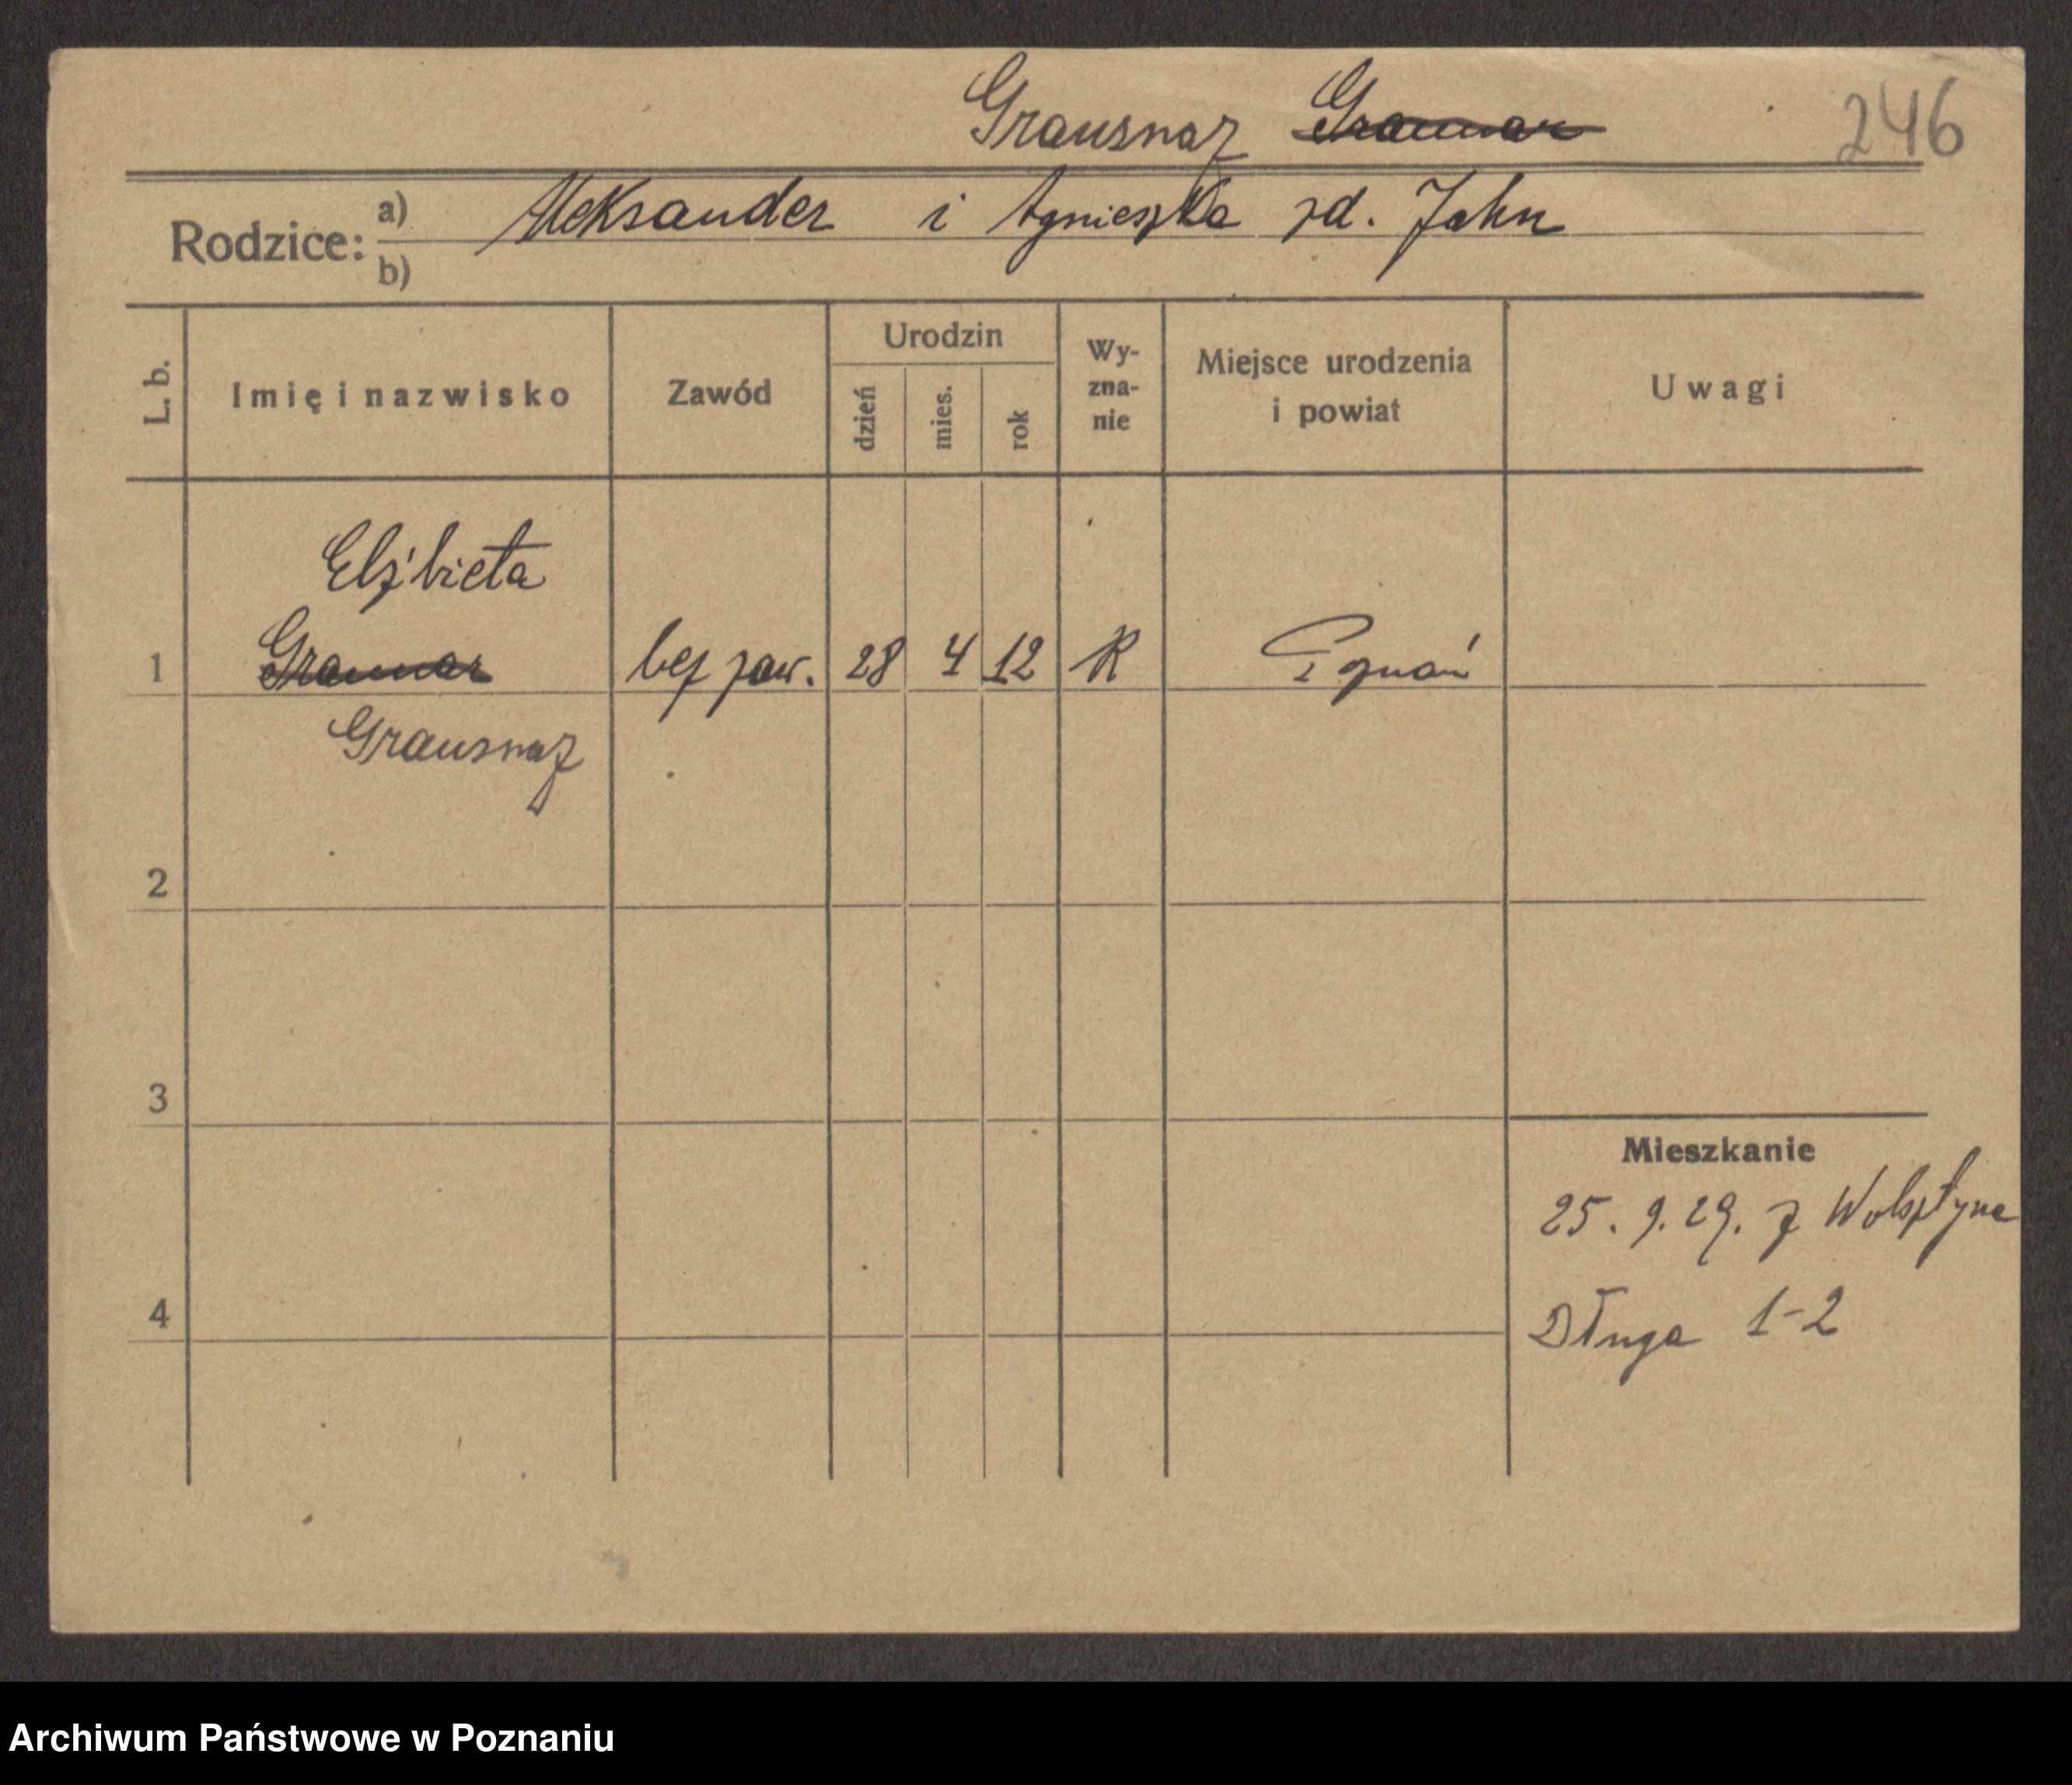 Grausnaz Graunar 246
Rodzice: a) Aleksander i Agnieszka zd. Jahn
b)
L. b. Imię i nazwisko Zawód Urodzin dzień mies. rok Wy-zna-nie Miejsce urodzenia i powiat Uwagi
Elżbieta
1 Graunar bez zaw. 28 4 12 R Poznań
Grausnaz
2
3
Mieszkanie
25. 9. 29. z Wolsztyna
4 Długa 1-2
Archiwum Państwowe w Poznaniu